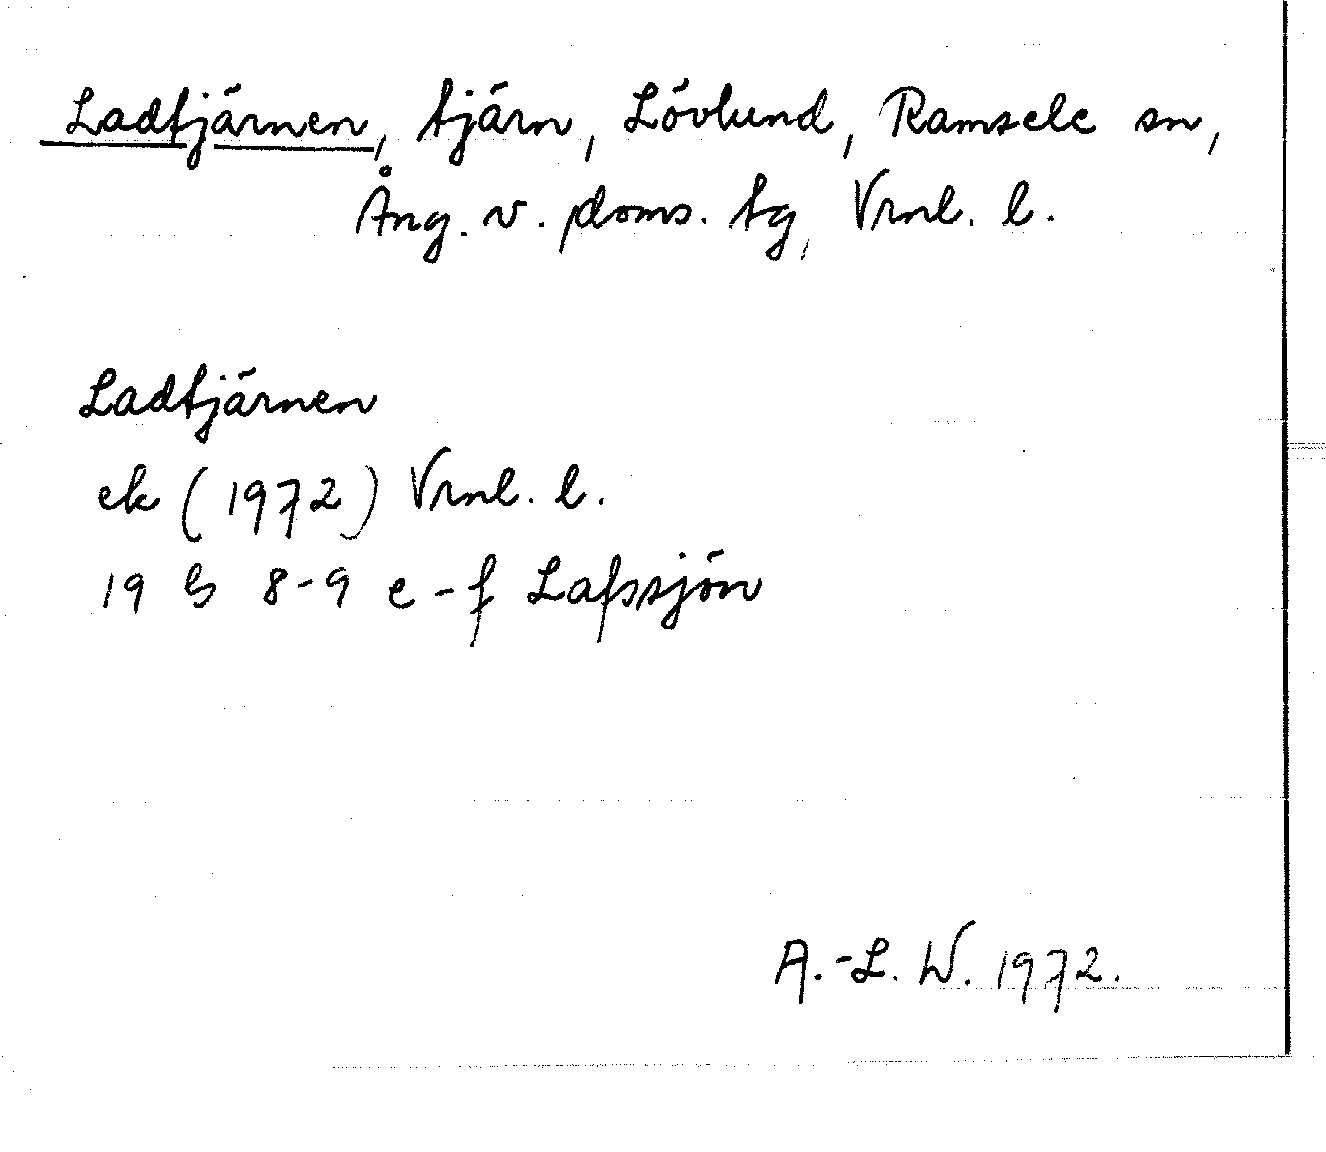 Ladtjärnen, tjärn, Lövlund, Ramsele sn,
Ång. v. doms. tg, Vrnl. l.
Ladtjärnen
ek (1972) Vrnl. l.
19 G 8-9 e-f Lafssjön
A.-L. W. 1972.